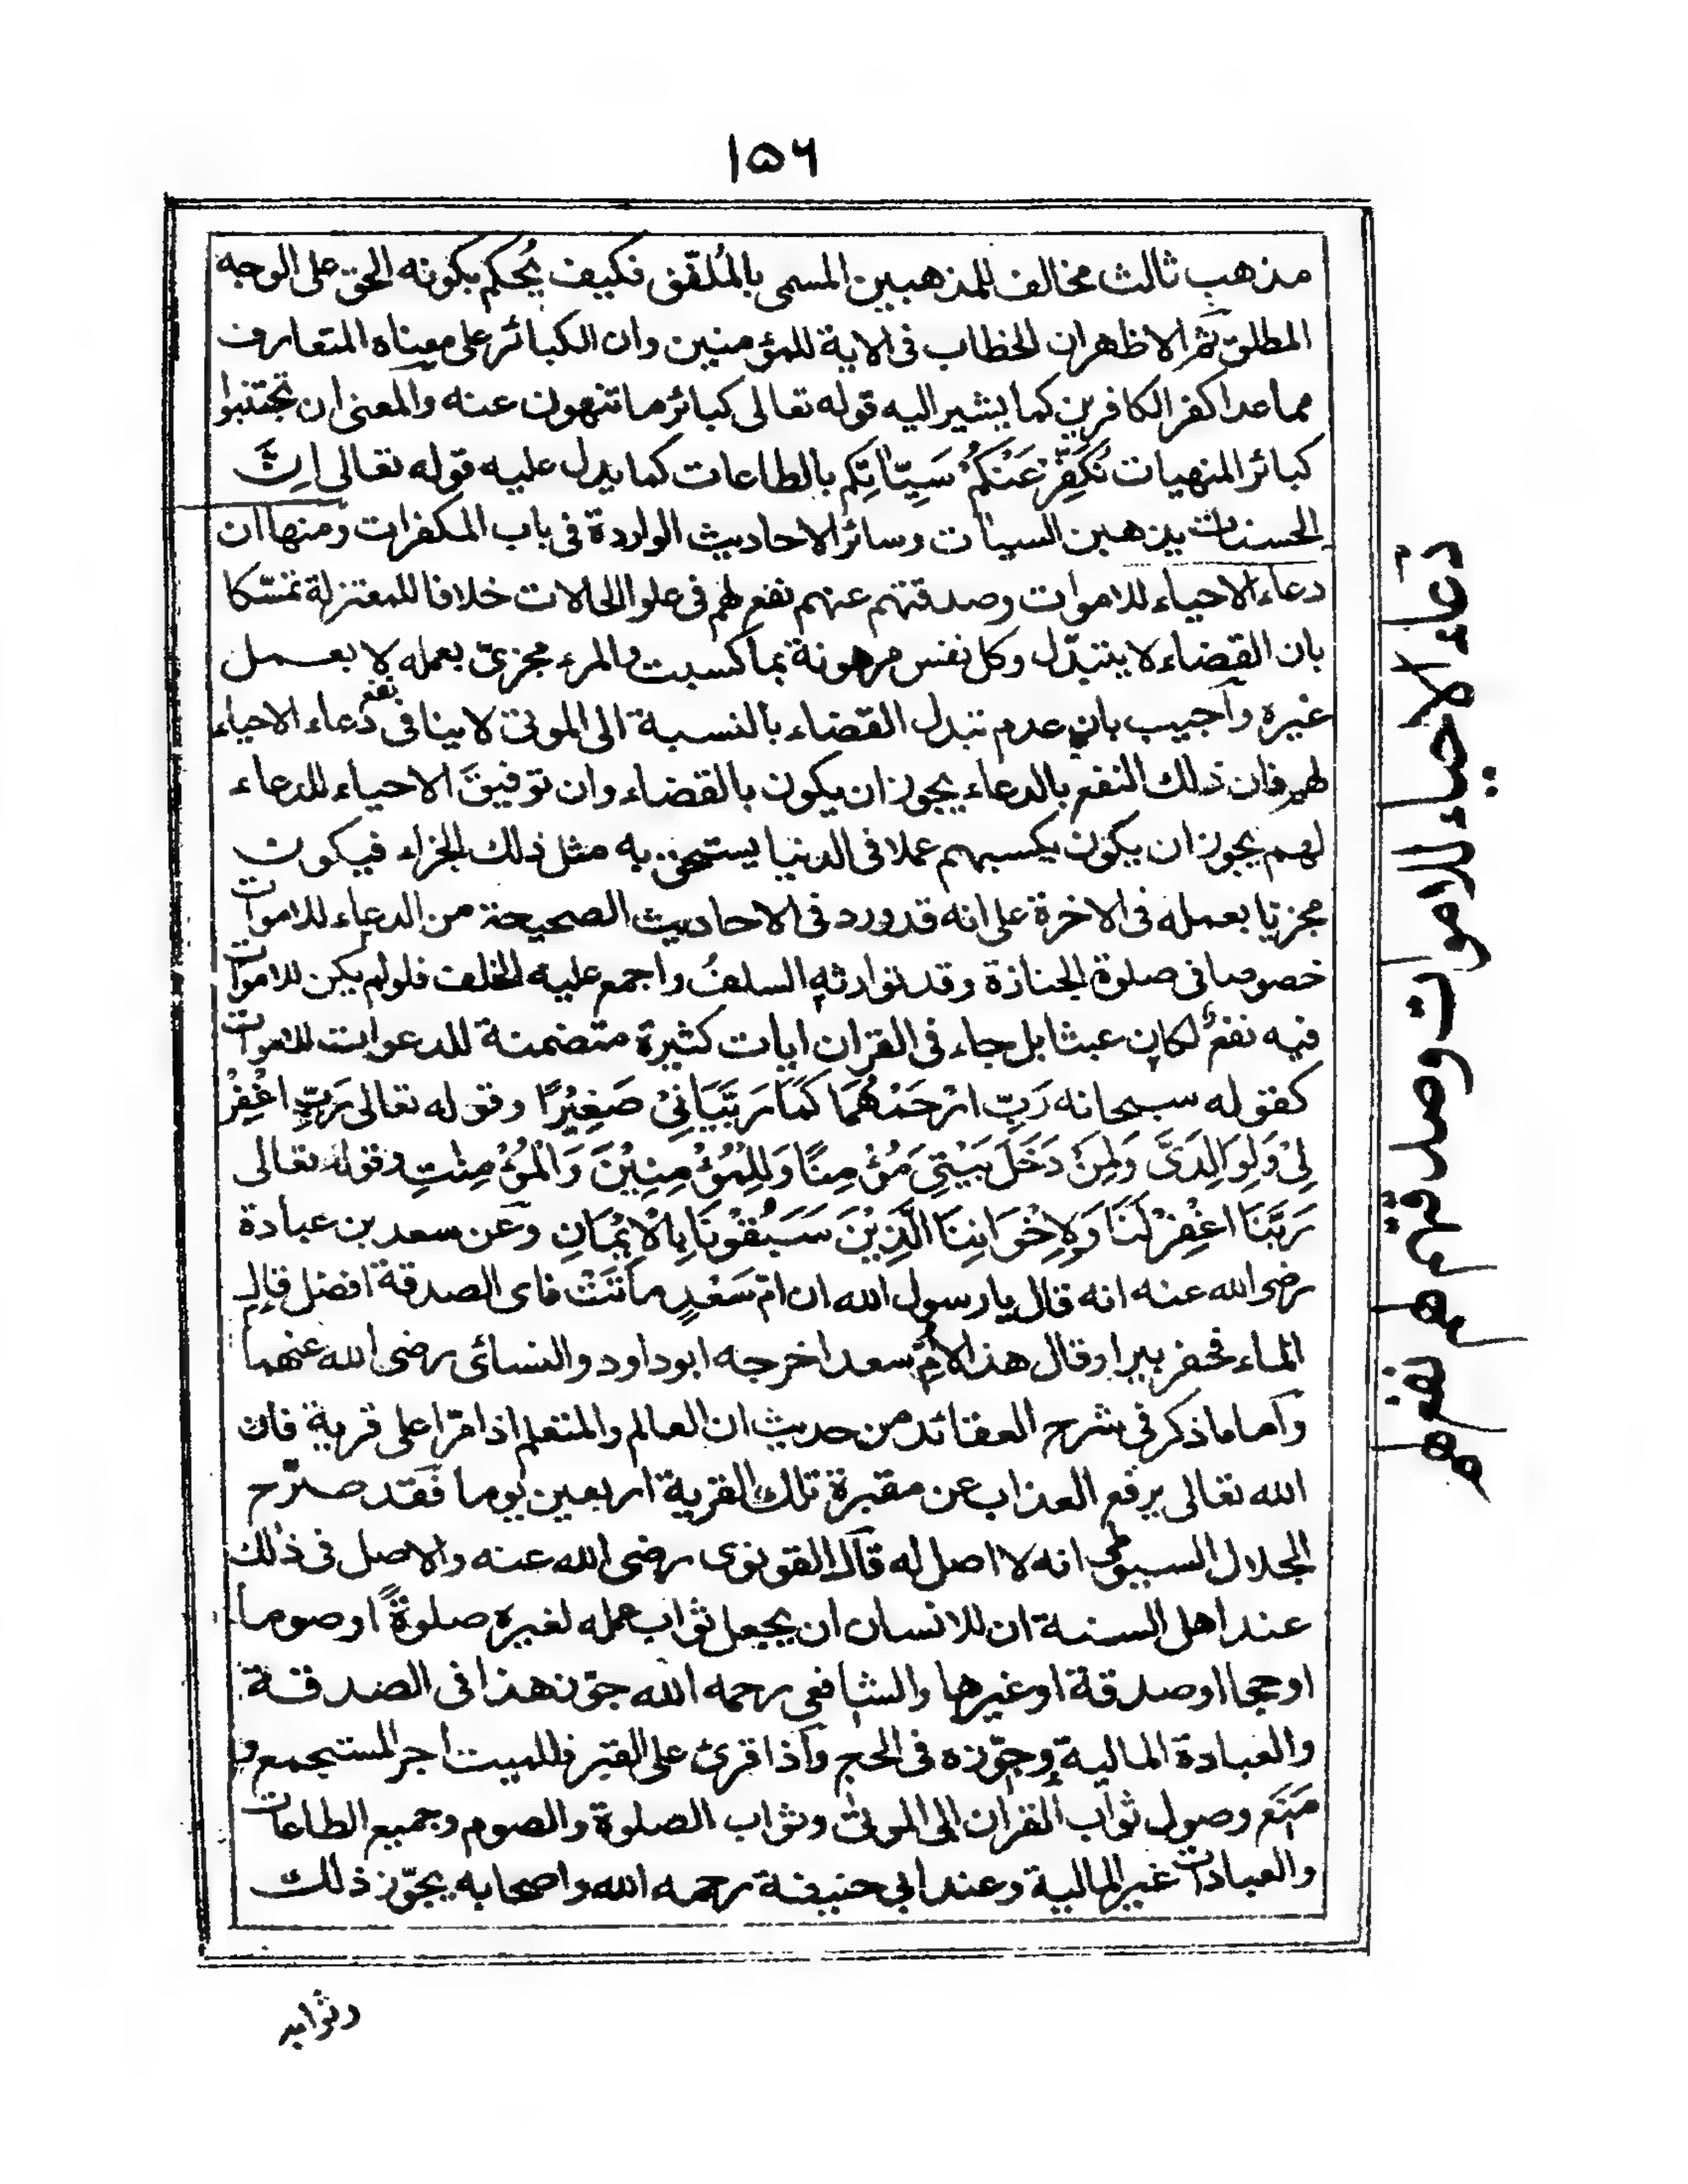 ۱۵۶
مذهب ثالث مخالف للمذهبين المسمى بالمُلفّق فكيف يُحكم بكونه الحق على الوجه
المطلق ثم الاظهر ان الخطاب فى الاية للمؤمنين وان الكبائر على معناه المتعارف
مما عدا كفر الكافرين كما يشير اليه قوله تعالى كبائر ما تنهون عنه والمعنى ان تجتنبوا
كبائر المنهيات نُكَفِّرْ عَنْكُمْ سَيِّاٰتِكُم بالطاعات كما يدل عليه قوله تعالى اِنَّ
الحسنات يذهبن السيات وسائر الاحاديث الواردة فى باب المكفرات ومنها ان
دعاء الاحياء للاموات وصدقتهم عنهم نفع لهم فى علو الحالات خلافا للمعتزلة تمسّكا
بان القضاء لا يتبدّل وكل نفس مرهونة بما كسبت والمرء مجزىّ بعمله لا بعمل
غيره واجيب بان عدم تبدل القضاء بالنسبة الى الموتى لا ينافى نفع دعاء الاحياء
لهم فان ذلك النفع بالدعاء يجوز ان يكون بالقضاء وان توفيق الاحياء للدعاء
لهم يجوز ان يكون بكسبهم عملا فى الدنيا يستحق به مثل ذلك الجزاء فيكون
مجزيا بعمله فى الاخرة على انه قد ورد فى الاحاديث الصحيحة من الدعاء للاموات
خصوصا فى صلوة الجنازة وقد توارثه السلفُ واجمع عليه الخلف فلو لم يكن للاموات
فيه نفعٌ لكان عبثا بل جاء فى القران ايات كثيرة متضمنة للدعوات للاموات
كقوله سبحانه رَبِّ ارْحَمْهُمَا كَمَا رَبَّيَانِىْ صَغِيْرًا وقوله تعالى رَبِّ اغْفِرْ
لِىْ وَلِوَالِدَىَّ وَلِمَنْ دَخَلَ بَيْتِىَ مُؤْمِنًا وَلِلْمُؤْمِنِيْنَ وَالْمُؤْمِنٰتِ وقوله تعالى
رَبَّنَا اغْفِرْ لَنَا وَلِاِخْوَانِنَا الَّذِيْنَ سَبَقُوْنَا بِالْاِيْمَانِ وعن سعد بن عبادة
رضى الله عنه انه قال يا رسول الله ان امّ سَعْدٍ ماتَتْ فاى الصدقة افضل قال
الماء فحفر بيرا وقال هذا لامّ سعد اخرجه ابو داود والنسائى رضى الله عنهما
واما ما ذكر فى شرح العقائد من حديث ان العالم والمتعلم اذا مرّا على قرية فان
الله تعالى يرفع العذاب عن مقبرة تلك القرية اربعين يوما فقد صرّح
الجلال السيوطى انه لا اصل له قال القونوى رضى الله عنه والاصل فى ذلك
عند اهل السنة ان للانسان ان يجعل ثواب عمله لغيره صلوةً او صوما
او حجا او صدقة او غيرها والشافعى رحمه الله جوّز هذا فى الصدقة
والعبادة المالية وجوّزه فى الحج واذا قرئ على القبر فللميت اجر المستمع و
مَنَع وصول ثواب القران الى الموتى وثواب الصلوة والصوم وجميع الطاعات
والعبادات غير المالية وعند ابى حنيفة رحمه الله واصحابه يجوّز ذلك
وثوابه
دعاء الاحياء للاموات وصدقتهم نفع لهم